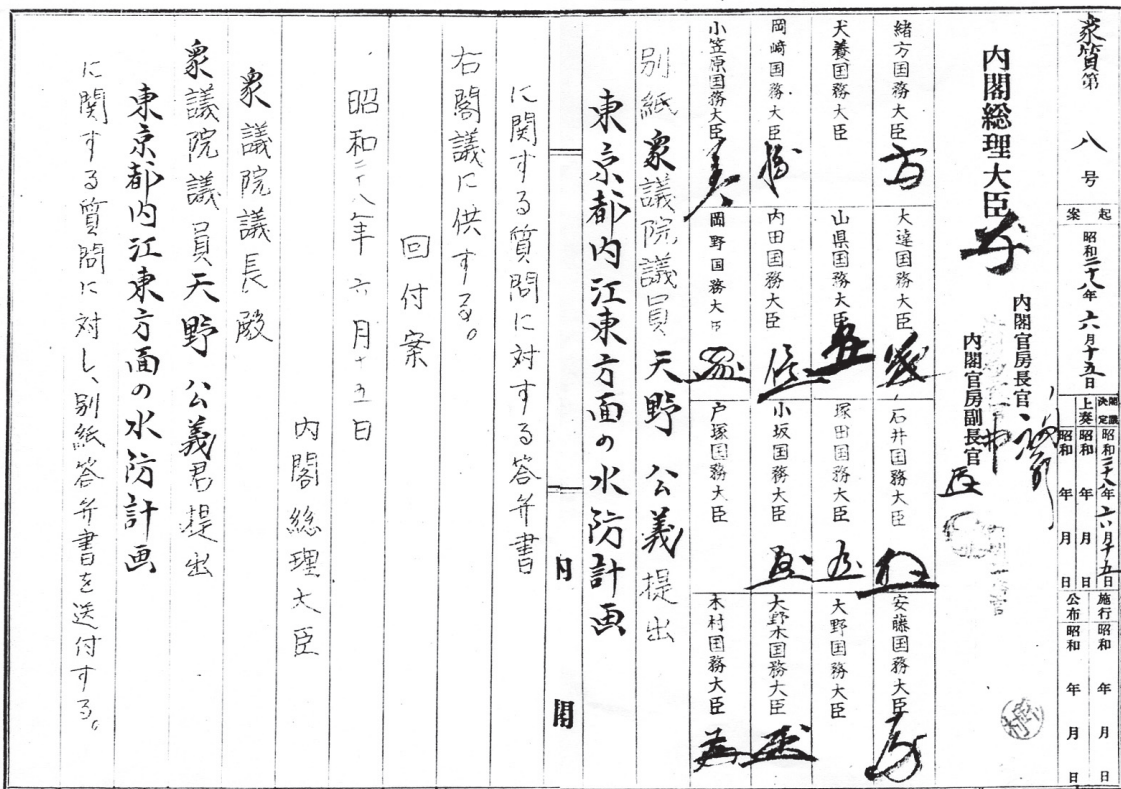 衆質第 八 号
起案 昭和二十八年 六月十五日
閣議決定 昭和二十八年 六月十五日
上奏 昭和 年 月 日
施行 昭和 年 月 日
公布 昭和 年 月 日
内閣総理大臣
内閣官房長官
内閣官房副長官
緒方国務大臣
大達国務大臣
石井国務大臣
安藤国務大臣
犬養国務大臣
山県国務大臣
塚田国務大臣
大野国務大臣
岡崎国務大臣
内田国務大臣
小坂国務大臣
大野木国務大臣
小笠原国務大臣
岡野国務大臣
戸塚国務大臣
木村国務大臣
別紙衆議院議員 天野 公義 提出
東京都内江東方面の水防計画
内 閣
に関する質問に対する答弁書
右閣議に供する。
回付案
昭和二十八年 六 月十五日
内閣総理大臣
衆議院議長殿
衆議院議員 天野 公義君提出
東京都内江東方面の水防計画
に関する質問に対し、別紙答弁書を送付する。